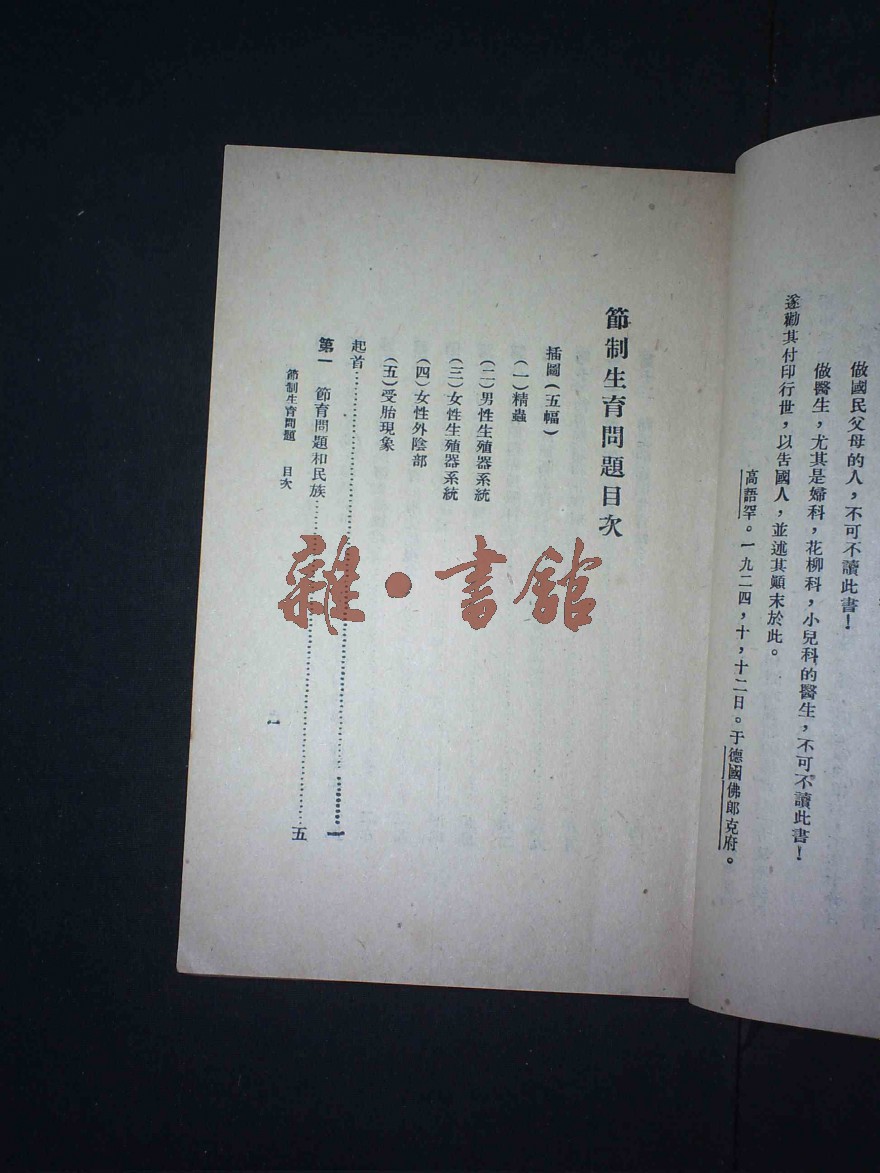 做國民父母的人，不可不讀此書！
做醫生，尤其是婦科，花柳科，小兒科的醫生，不可不讀此書！
遂勸其付印行世，以告國人，並述其顚末於此。
高語罕。一九二四，十，十二日。于德國佛郎克府。
節制生育問題目次
插圖（五幅）
（一）精蟲
（二）男性生殖器系統
（三）女性生殖器系統
（四）女性外陰部
（五）受胎現象
起首……………………一
第一　節育問題和民族……………………五
節制生育問題　目次
一
雜·書館